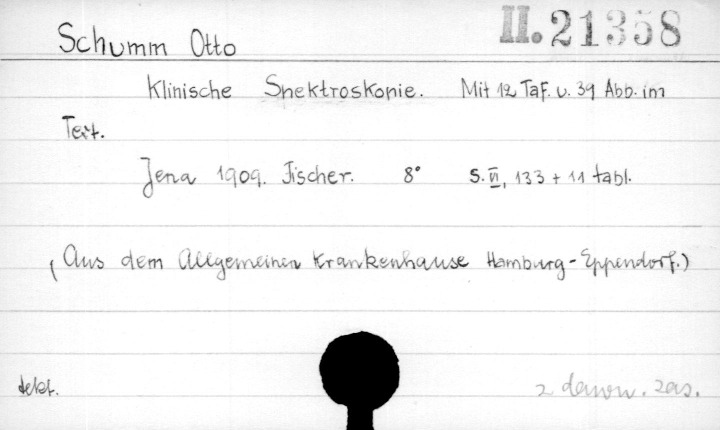 II. 21358
Schumm Otto
Klinische Spektroskopie. Mit 12 Taf. u. 39 Abb. im
Text.
Jena 1909. Fischer. 8° S. VI, 133 + 11 tabl.
(Aus dem Allgemeinen Krankenhause Hamburg-Eppendorf.)
z dawn. zas.